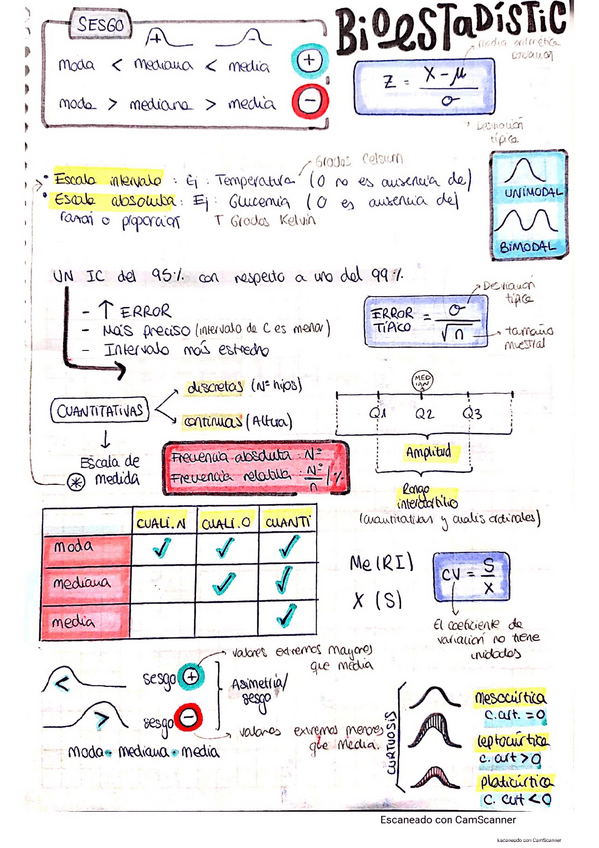 BiOESTADÍSTIC
SESGO
moda < mediana < media +
moda > mediana > media -
media aritmética
Z = X - μ / σ
Desviación
típica
Grados Celsium
• Escala intervalo : Ej : Temperatura (0 no es ausencia de)
• Escala absoluta : Ej : Glucemia (0 es ausencia de)
razón o proporción T Grados Kelvin
UNIMODAL
BIMODAL
UN IC del 95% con respecto a uno del 99%
- ↑ ERROR
- Más preciso (intervalo de C es menor)
- Intervalo más estrecho
Desviación
típica
ERROR TÍPICO = σ / √n
tamaño
muestral
CUANTITATIVAS
discretas (Nº hijos)
continuas (Altura)
Escala de
medida
*
MEDIANA
Q1 Q2 Q3
Amplitud
Rango
intercuartílico
(cuantitativas y cualis ordinales)
Frecuencia absoluta : Nº
Frecuencia relativa : Nº/n / %
CUALI.N CUALI.O CUANTI
moda ✓ ✓ ✓
mediana ✓ ✓
media ✓
Me (RI)
X (S)
CV = S / X
El coeficiente de
variación no tiene
unidades
valores extremos mayores
que media
< sesgo +
Asimetría/
sesgo
> sesgo -
valores extremos menores
que media.
moda - mediana - media
CURTOSIS
Mesocúrtica
c.curt. = 0
leptocúrtica
c. curt > 0
platicúrtica
c. curt < 0
Escaneado con CamScanner
kacaneado con CamScanner